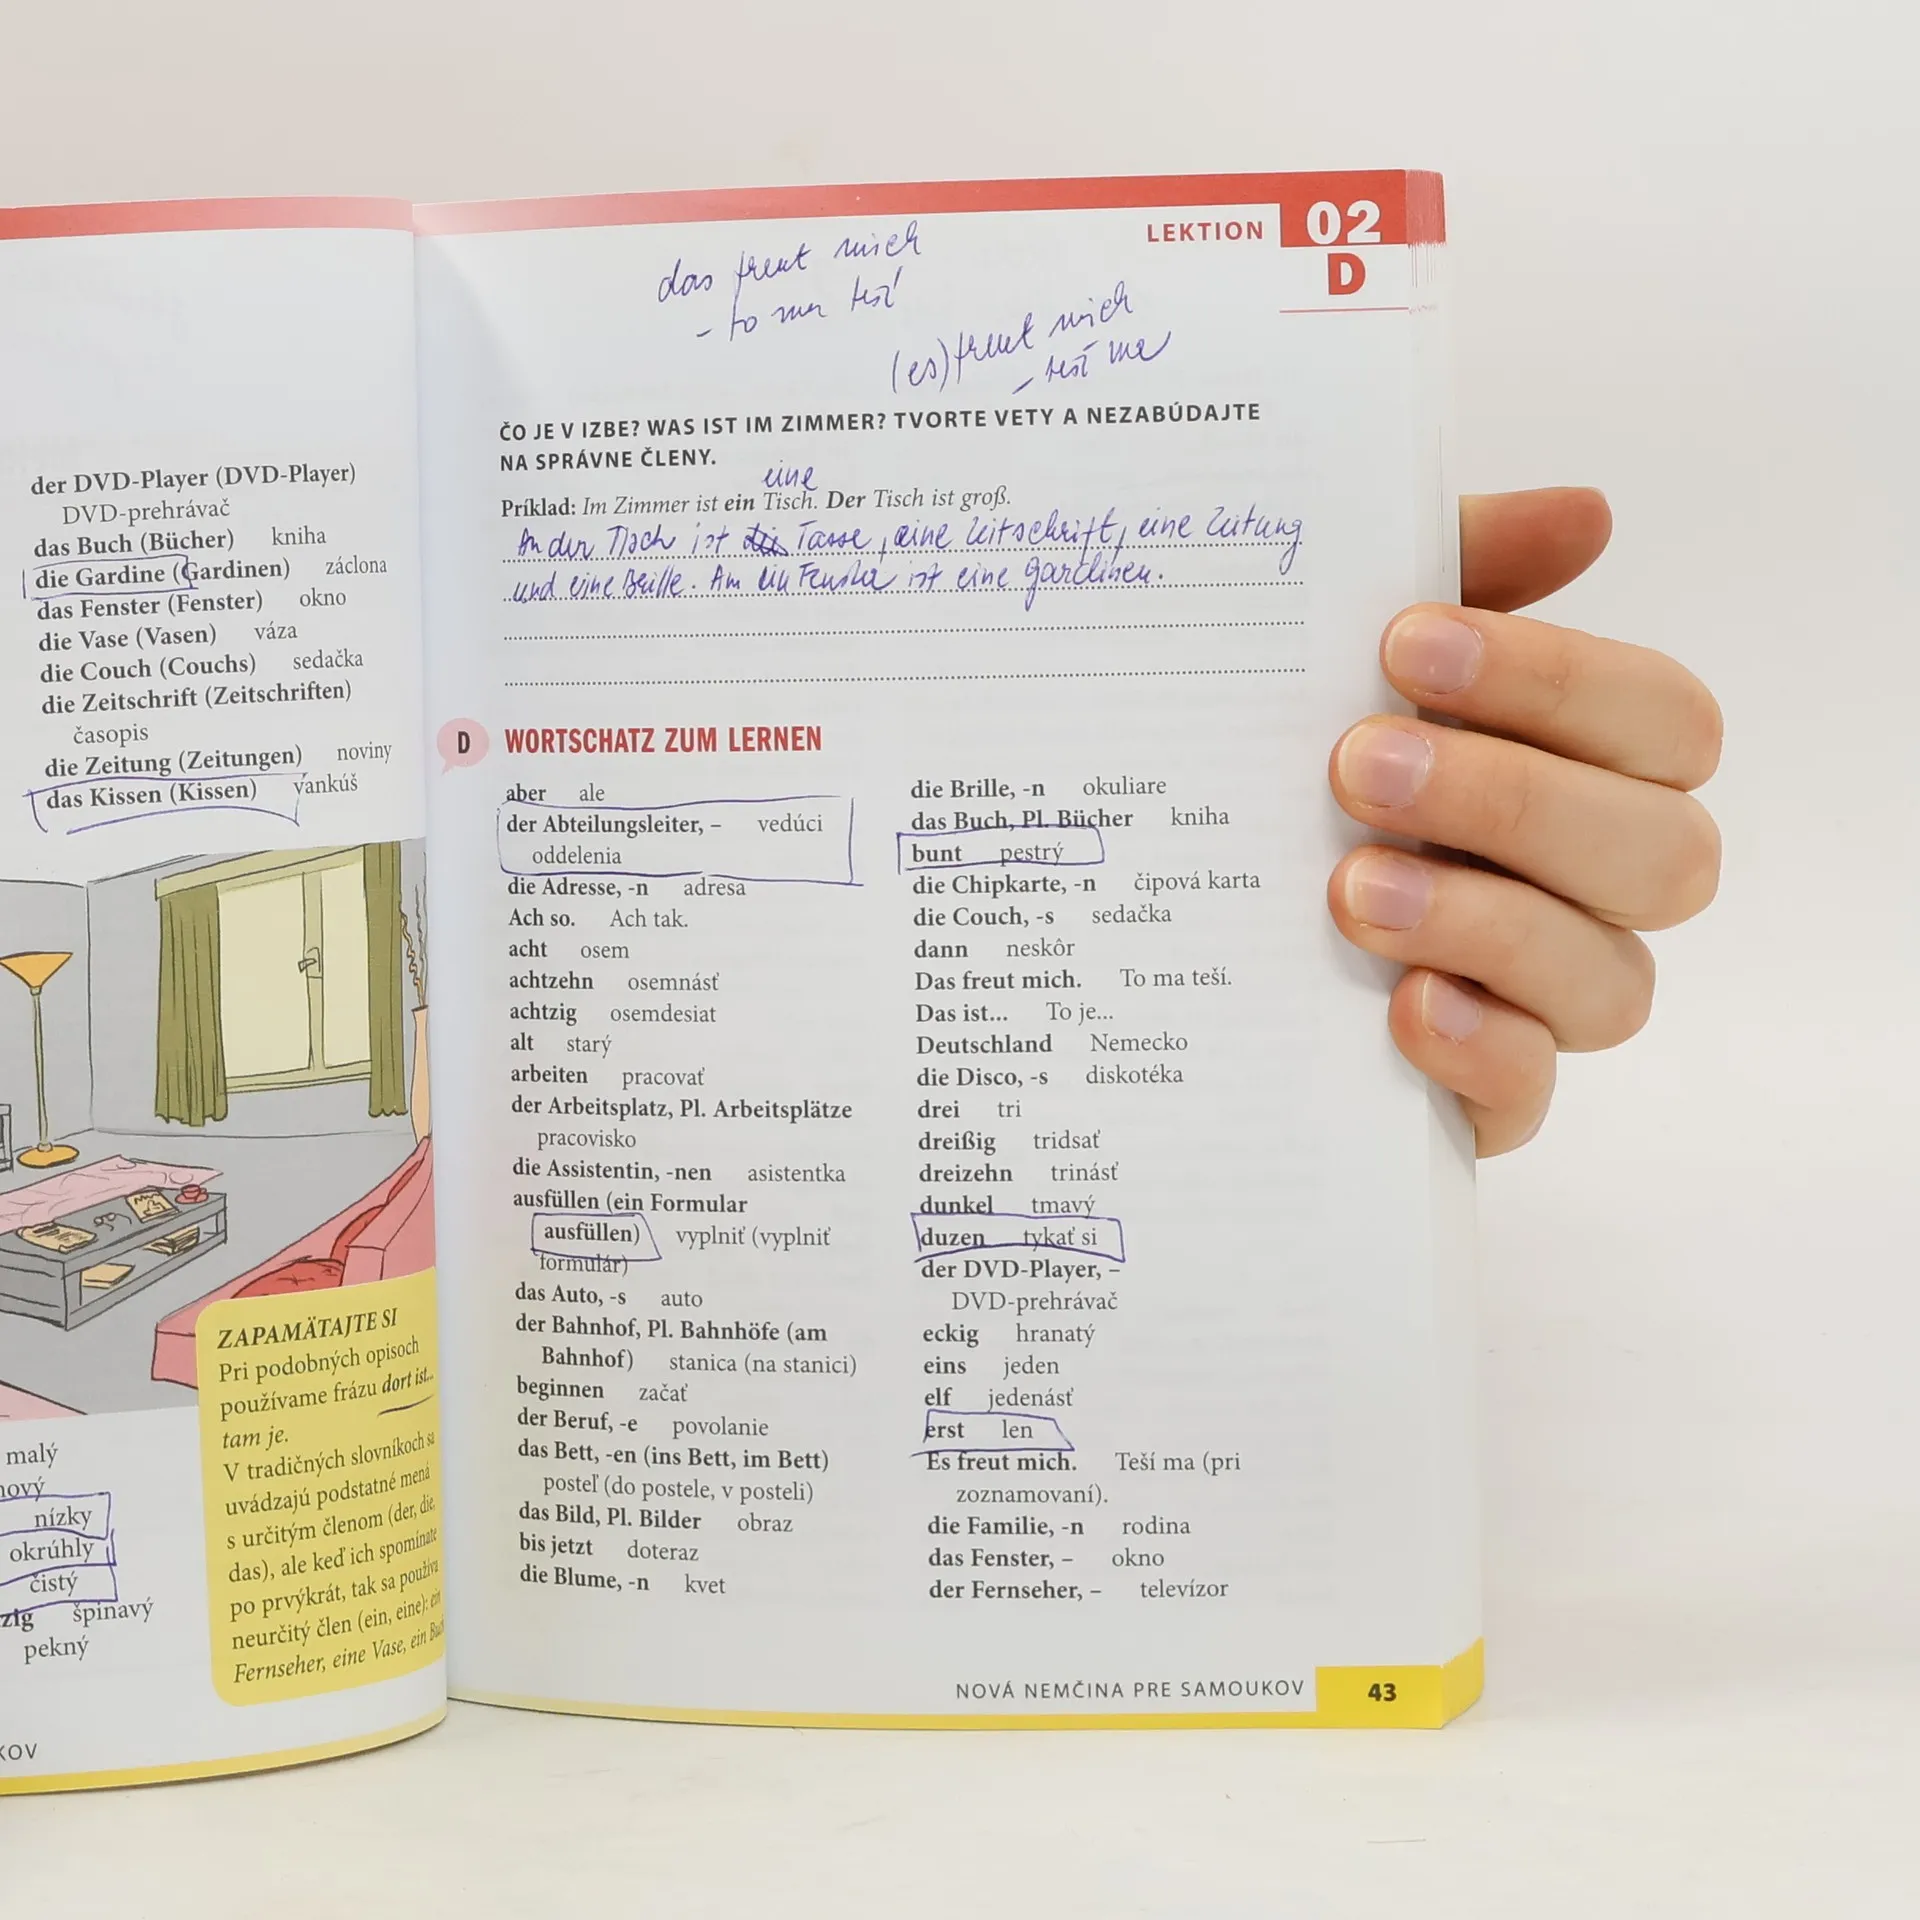 der DVD-Player (DVD-Player)
DVD-prehrávač
das Buch (Bücher) kniha
die Gardine (Gardinen) záclona
das Fenster (Fenster) okno
die Vase (Vasen) váza
die Couch (Couchs) sedačka
die Zeitschrift (Zeitschriften)
časopis
die Zeitung (Zeitungen) noviny
das Kissen (Kissen) vankúš
ZAPAMÄTAJTE SI
Pri podobných opisoch
používame frázu dort ist...
tam je.
V tradičných slovníkoch sa
uvádzajú podstatné mená
s určitým členom (der, die,
das), ale keď ich spomíname
po prvýkrát, tak sa používa
neurčitý člen (ein, eine): ein
Fernseher, eine Vase, ein Buch
malý
nový
nízky
okrúhly
čistý
zig špinavý
pekný
KOV
LEKTION 02
D
das freut mich
- to ma teší
(es) freut mich
- teší ma
ČO JE V IZBE? WAS IST IM ZIMMER? TVORTE VETY A NEZABÚDAJTE
NA SPRÁVNE ČLENY.
eine
Príklad: Im Zimmer ist ein Tisch. Der Tisch ist groß.
An der Tisch ist die Tasse, eine Zeitschrift, eine Zeitung
und eine Brille. Am ein Fenster ist eine gardinen.
D WORTSCHATZ ZUM LERNEN
aber ale
der Abteilungsleiter, – vedúci
oddelenia
die Adresse, -n adresa
Ach so. Ach tak.
acht osem
achtzehn osemnásť
achtzig osemdesiat
alt starý
arbeiten pracovať
der Arbeitsplatz, Pl. Arbeitsplätze
pracovisko
die Assistentin, -nen asistentka
ausfüllen (ein Formular
ausfüllen) vyplniť (vyplniť
formulár)
das Auto, -s auto
der Bahnhof, Pl. Bahnhöfe (am
Bahnhof) stanica (na stanici)
beginnen začať
der Beruf, -e povolanie
das Bett, -en (ins Bett, im Bett)
posteľ (do postele, v posteli)
das Bild, Pl. Bilder obraz
bis jetzt doteraz
die Blume, -n kvet
die Brille, -n okuliare
das Buch, Pl. Bücher kniha
bunt pestrý
die Chipkarte, -n čipová karta
die Couch, -s sedačka
dann neskôr
Das freut mich. To ma teší.
Das ist... To je...
Deutschland Nemecko
die Disco, -s diskotéka
drei tri
dreißig tridsať
dreizehn trinásť
dunkel tmavý
duzen tykať si
der DVD-Player, –
DVD-prehrávač
eckig hranatý
eins jeden
elf jedenásť
erst len
Es freut mich. Teší ma (pri
zoznamovaní).
die Familie, -n rodina
das Fenster, – okno
der Fernseher, – televízor
NOVÁ NEMČINA PRE SAMOUKOV 43